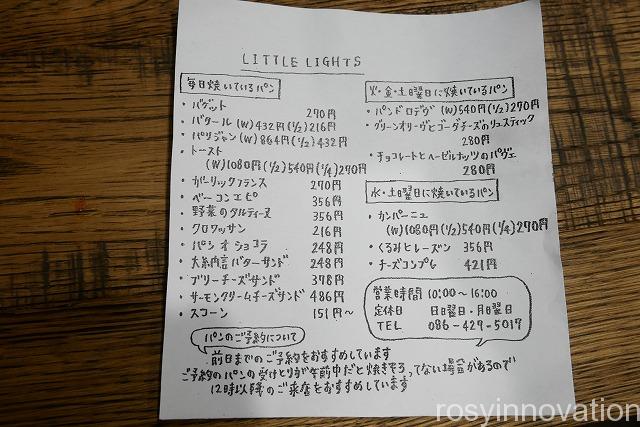 LITTLE LIGHTS
毎日焼いているパン
・バゲット 270円
・バタール (W)432円(1/2)216円
・パリジャン (W)864円(1/2)432円
・トースト
(W)1080円(1/2)540円(1/4)270円
・ガーリックフランス 270円
・ベーコンエピ 356円
・野菜のタルティーヌ 356円
・クロワッサン 216円
・パン オ ショコラ 248円
・大納言バターサンド 248円
・ブリーチーズサンド 378円
・サーモンクリームチーズサンド 486円
・スコーン 151円〜
火・金・土曜日に焼いているパン
・パンドロデヴ (W)540円(1/2)270円
・グリーンオリーヴとゴーダチーズのリュスティック
280円
・チョコレートとヘーゼルナッツのパヴェ
280円
水・土曜日に焼いているパン
・カンパーニュ
(W)1080円(1/2)540円(1/4)270円
・くるみとレーズン 356円
・チーズコンプレ 421円
営業時間 10:00〜16:00
定休日 日曜日・月曜日
TEL 086-427-5017
パンのご予約について
前日までのご予約をおすすめしています
ご予約のパンの受けとりが午前中だと焼きそろってない場合があるので
12時以降のご来店をおすすめしています
rosyinnovation